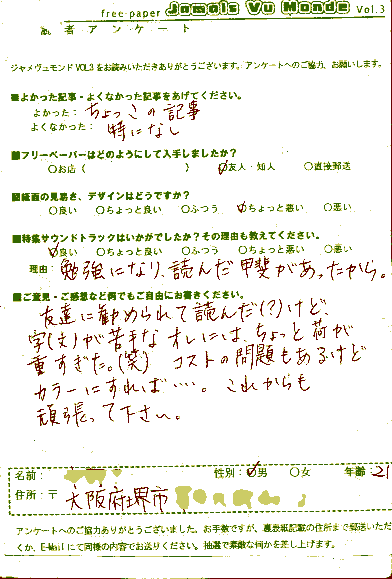 free-paper Jamais Vu Monde Vol.3
読者アンケート
ジャメヴュモンドVOL3をお読みいただきありがとうございます。アンケートへのご協力、お願いします。
■よかった記事・よくなかった記事をあげてください。
よかった：ちょっこの記事
よくなかった：特になし
■フリーペーパーはどのようにして入手しましたか？
○お店（　　　　）　○友人・知人　○直接郵送
■紙面の見易さ、デザインはどうですか？
○良い　○ちょっと良い　○ふつう　○ちょっと悪い　○悪い
■特集サウンドトラックはいかがでしたか？その理由も教えてください。
○良い　○ちょっと良い　○ふつう　○ちょっと悪い　○悪い
理由：勉強になり、読んだ甲斐があったから。
■ご意見・ご感想など何でもご自由にお書きください。
友達に勧められて読んだ(?)けど、
字(文)が苦手なオレには、ちょっと荷が
重すぎた。(笑)　コストの問題もあるけど
カラーにすれば……。これからも
頑張って下さい。
名前：　性別：○男　○女　年齢 21
住所：〒 大阪府堺市
アンケートへのご協力ありがとうございました。お手数ですが、裏表紙記載の住所まで郵送いただ
くか、E-Mailにて同様の内容でお送りください。抽選で素敵な何かを差し上げます。